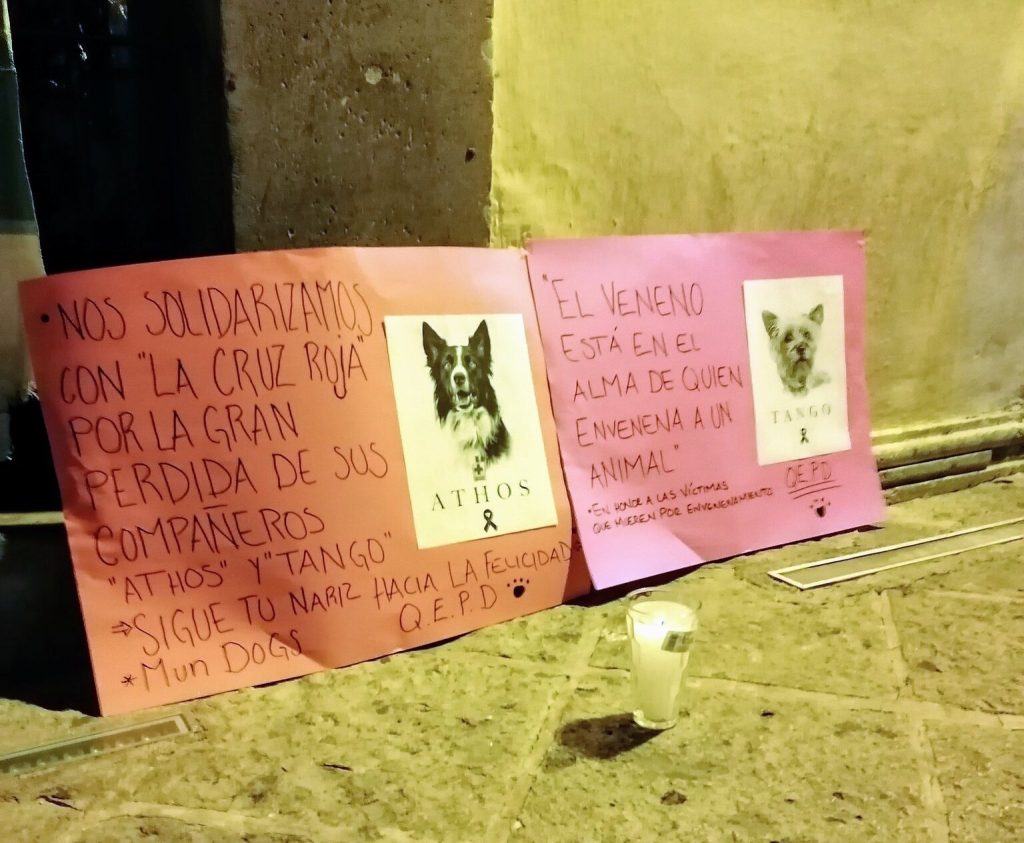 • NOS SOLIDARIZAMOS
CON "LA CRUZ ROJA"
POR LA GRAN
PERDIDA DE SUS
COMPAÑEROS
"ATHOS" Y "TANGO"
⇒ SIGUE TU NARIZ HACIA LA FELICIDAD
Q.E.P.D
* Mun DOGS
ATHOS
"EL VENENO
ESTÁ EN EL
ALMA DE QUIEN
ENVENENA A UN
ANIMAL"
• EN HONOR A LAS VÍCTIMAS
QUE MUEREN POR ENVENENAMIENTO
TANGO
Q.E.P.D